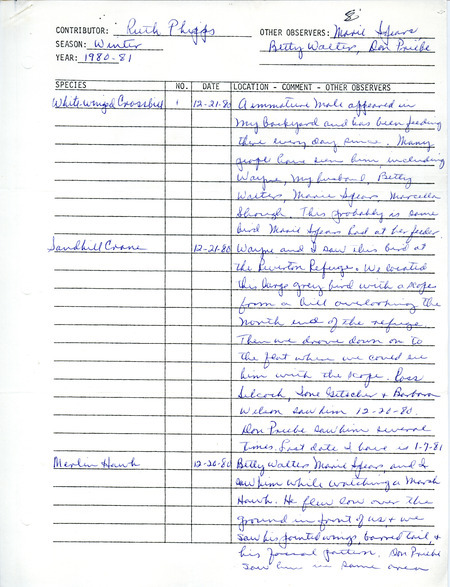 CONTRIBUTOR: Ruth Phipps OTHER OBSERVERS: Marie Spears,
SEASON: Winter Betty Walter, Don Priebe
YEAR: 1980-81
SPECIES NO. DATE LOCATION - COMMENT - OTHER OBSERVERS
White-winged Crossbill 1 12-21-80 A immature male appeared in
my backyard and has been feeding
there every day since. Many
people have seen him, including
Wayne, my husband, Betty
Walter, Marie Spears, Marcella
This probably is same
bird Marie Spears had at her feeder.
Sandhill Crane 12-21-80 Wayne and I saw this bird at
the Riverton Refuge. We located
this large grey bird with a scope
from a hill overlooking the
North end of the refuge.
Then we drove down on to
the flat where we could see
him with the scope. Ross
Silcock, Ione Getscher + Barbara
Wilson saw him 12-20-80.
Don Priebe saw him several
times. Last date I have is 1-7-81
Merlin Hawk 12-20-80 Betty Walter, Marie Spears, and I
saw him while watching a Marsh
Hawk. He flew low over the
ground in front of us + we
saw his pointed wings, barred tail, +
his facial pattern. Don Priebe
saw him in same area